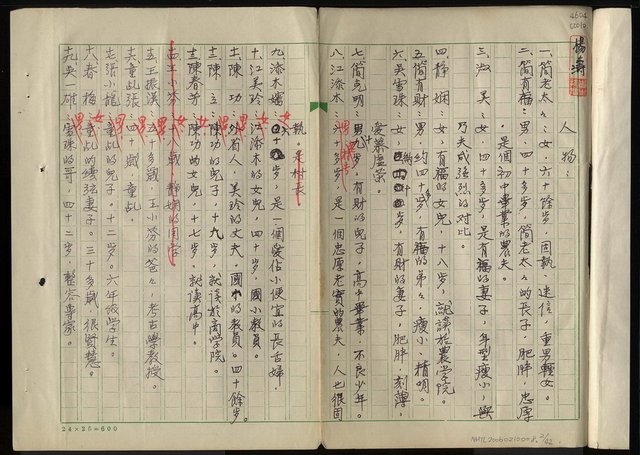 人物：
一、簡老太々：女，六十餘歲，固執，迷信，重男輕女。
二、簡有福：男，四十多歲，簡老太々的長子，肥胖，忠厚
，是個初中畢業的農夫。
三、淑美：女，四十多歲，是有福的妻子，年型瘦小，與
乃夫成強烈的對比。
四、靜嫻：女，有福的女兒，十八歲，就讀於農學院。
五、簡有財：男，約四十歲，有福的弟々，瘦小，精明。
六、吳雪珠：女，歲，有財的妻子，肥胖，刻薄，
愛慕虛榮。
七、簡克明：男，九歲，有財的兒子，高中畢業，不良少年。
八、江添木：男，六十多歲，是一個忠厚老實的農夫，人也很固
執。是村長
九、添木嬸：女，歲，是一個愛佔小便宜的長舌婦。
十、江美玲：江添木的女兒，四十歲，國小教員。
十一、陳功：外省人，美玲的丈夫，國中的教員。四十餘歲。
十二、陳：陳功的兒子，十九歲，就讀於商學院。
十三、陳春芳：陳功的女兒，十七歲，就讀高中。
十四、王小芬：十八歲，靜嫻的同學
十五、王振漢：五十多歲，王小芬的爸々，考古學教授。
十六、童乩張：四十歲，童乩。
十七、張小龍：童乩的兒子。十二歲。六年級學生。
十八、春梅：童乩的續弦妻子。三十多歲，很賢慧。
十九、吳一雄：雪珠的哥，四十二歲，整容專家。
楊濤
4604
24×25=600
NMTL20060210008